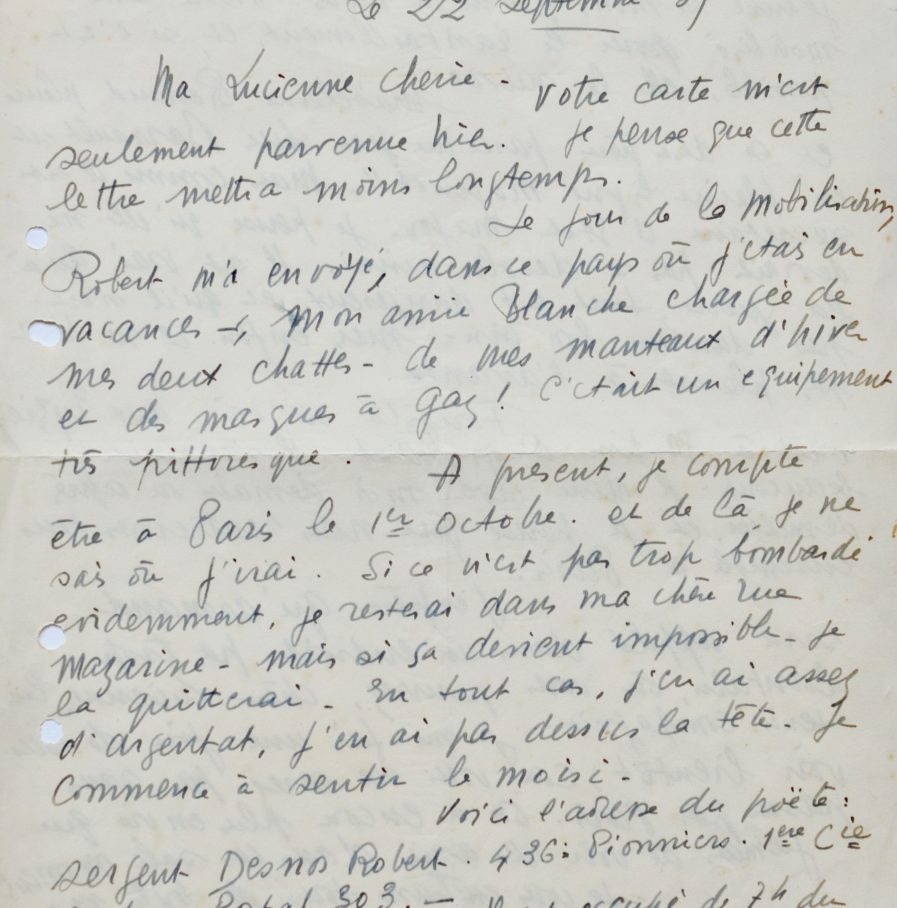 Le 22 Septembre 39
Ma Lucienne cherie - votre carte m'est
seulement parvenue hier. Je pense que cette
lettre mettra moins longtemps.
Le jour de la mobilisation,
Robert m'a envoyé, dans ce pays où j'étais en
vacances -, mon amie Blanche chargée de
mes deux chattes - de mes manteaux d'hiver
et des masques à gaz! C'était un equipement
très pittoresque. A present, je compte
être à Paris le 1er Octobre. et de là je ne
sais où j'irai. Si ce n'est pas trop bombardé
evidemment, je resterai dans ma chère rue
Mazarine - mais si ça devient impossible - je
la quitterai - En tout cas, j'en ai assez
d'argentat, j'en ai par dessus la tête. Je
commence à sentir le moisi -
Voici l'adresse du poëte:
sergent Desnos Robert. 436e Pionniers. 1ère Cie
Postal 303. - occupé de 7h du